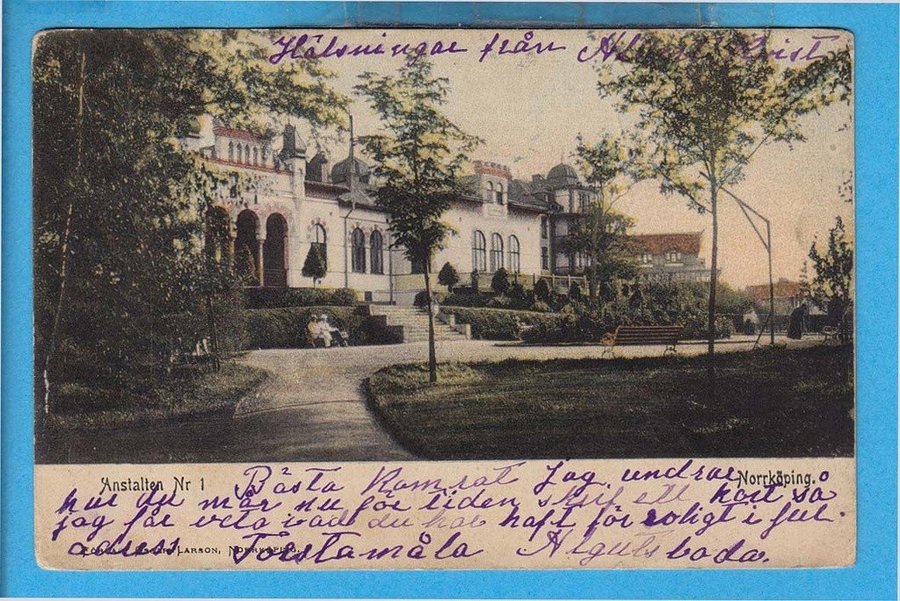 Hälsningar från
Anstalten Nr 1
Norrköping.
Bästa Kamrat Jag undrar
hur du mår nu för tiden skrif ett kort så
jag får veta vad du har haft för roligt i jul.
adress Törstamåla
LARSON, NORRKÖPING.